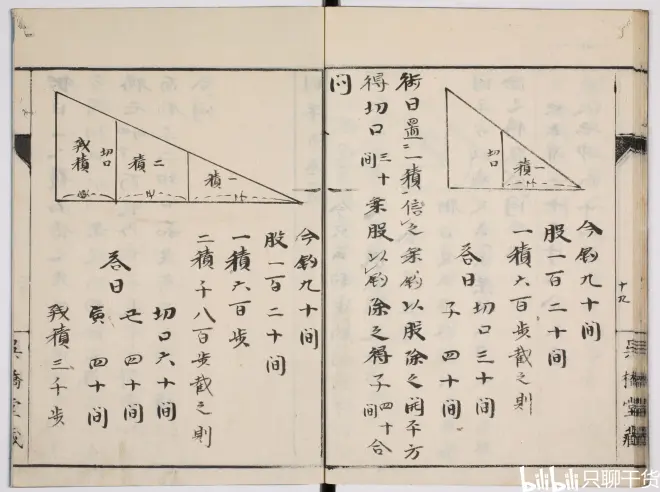 十九
一積
切口
今鈎九十間
股一百二十間
一積六百歩截之則
答曰
切口三十間
子 四十間
術曰置二一積倍之乗鈎以股除之開平方
得切口三十間乗股以鈎除之得子四十間合
問
一積
二積
切口
残積
今鈎九十間
股一百二十間
一積六百歩
二積千八百歩截之則
答曰
切口六十間
丑 四十間
寅 四十間
残積三千歩
bilibili 只聊干货